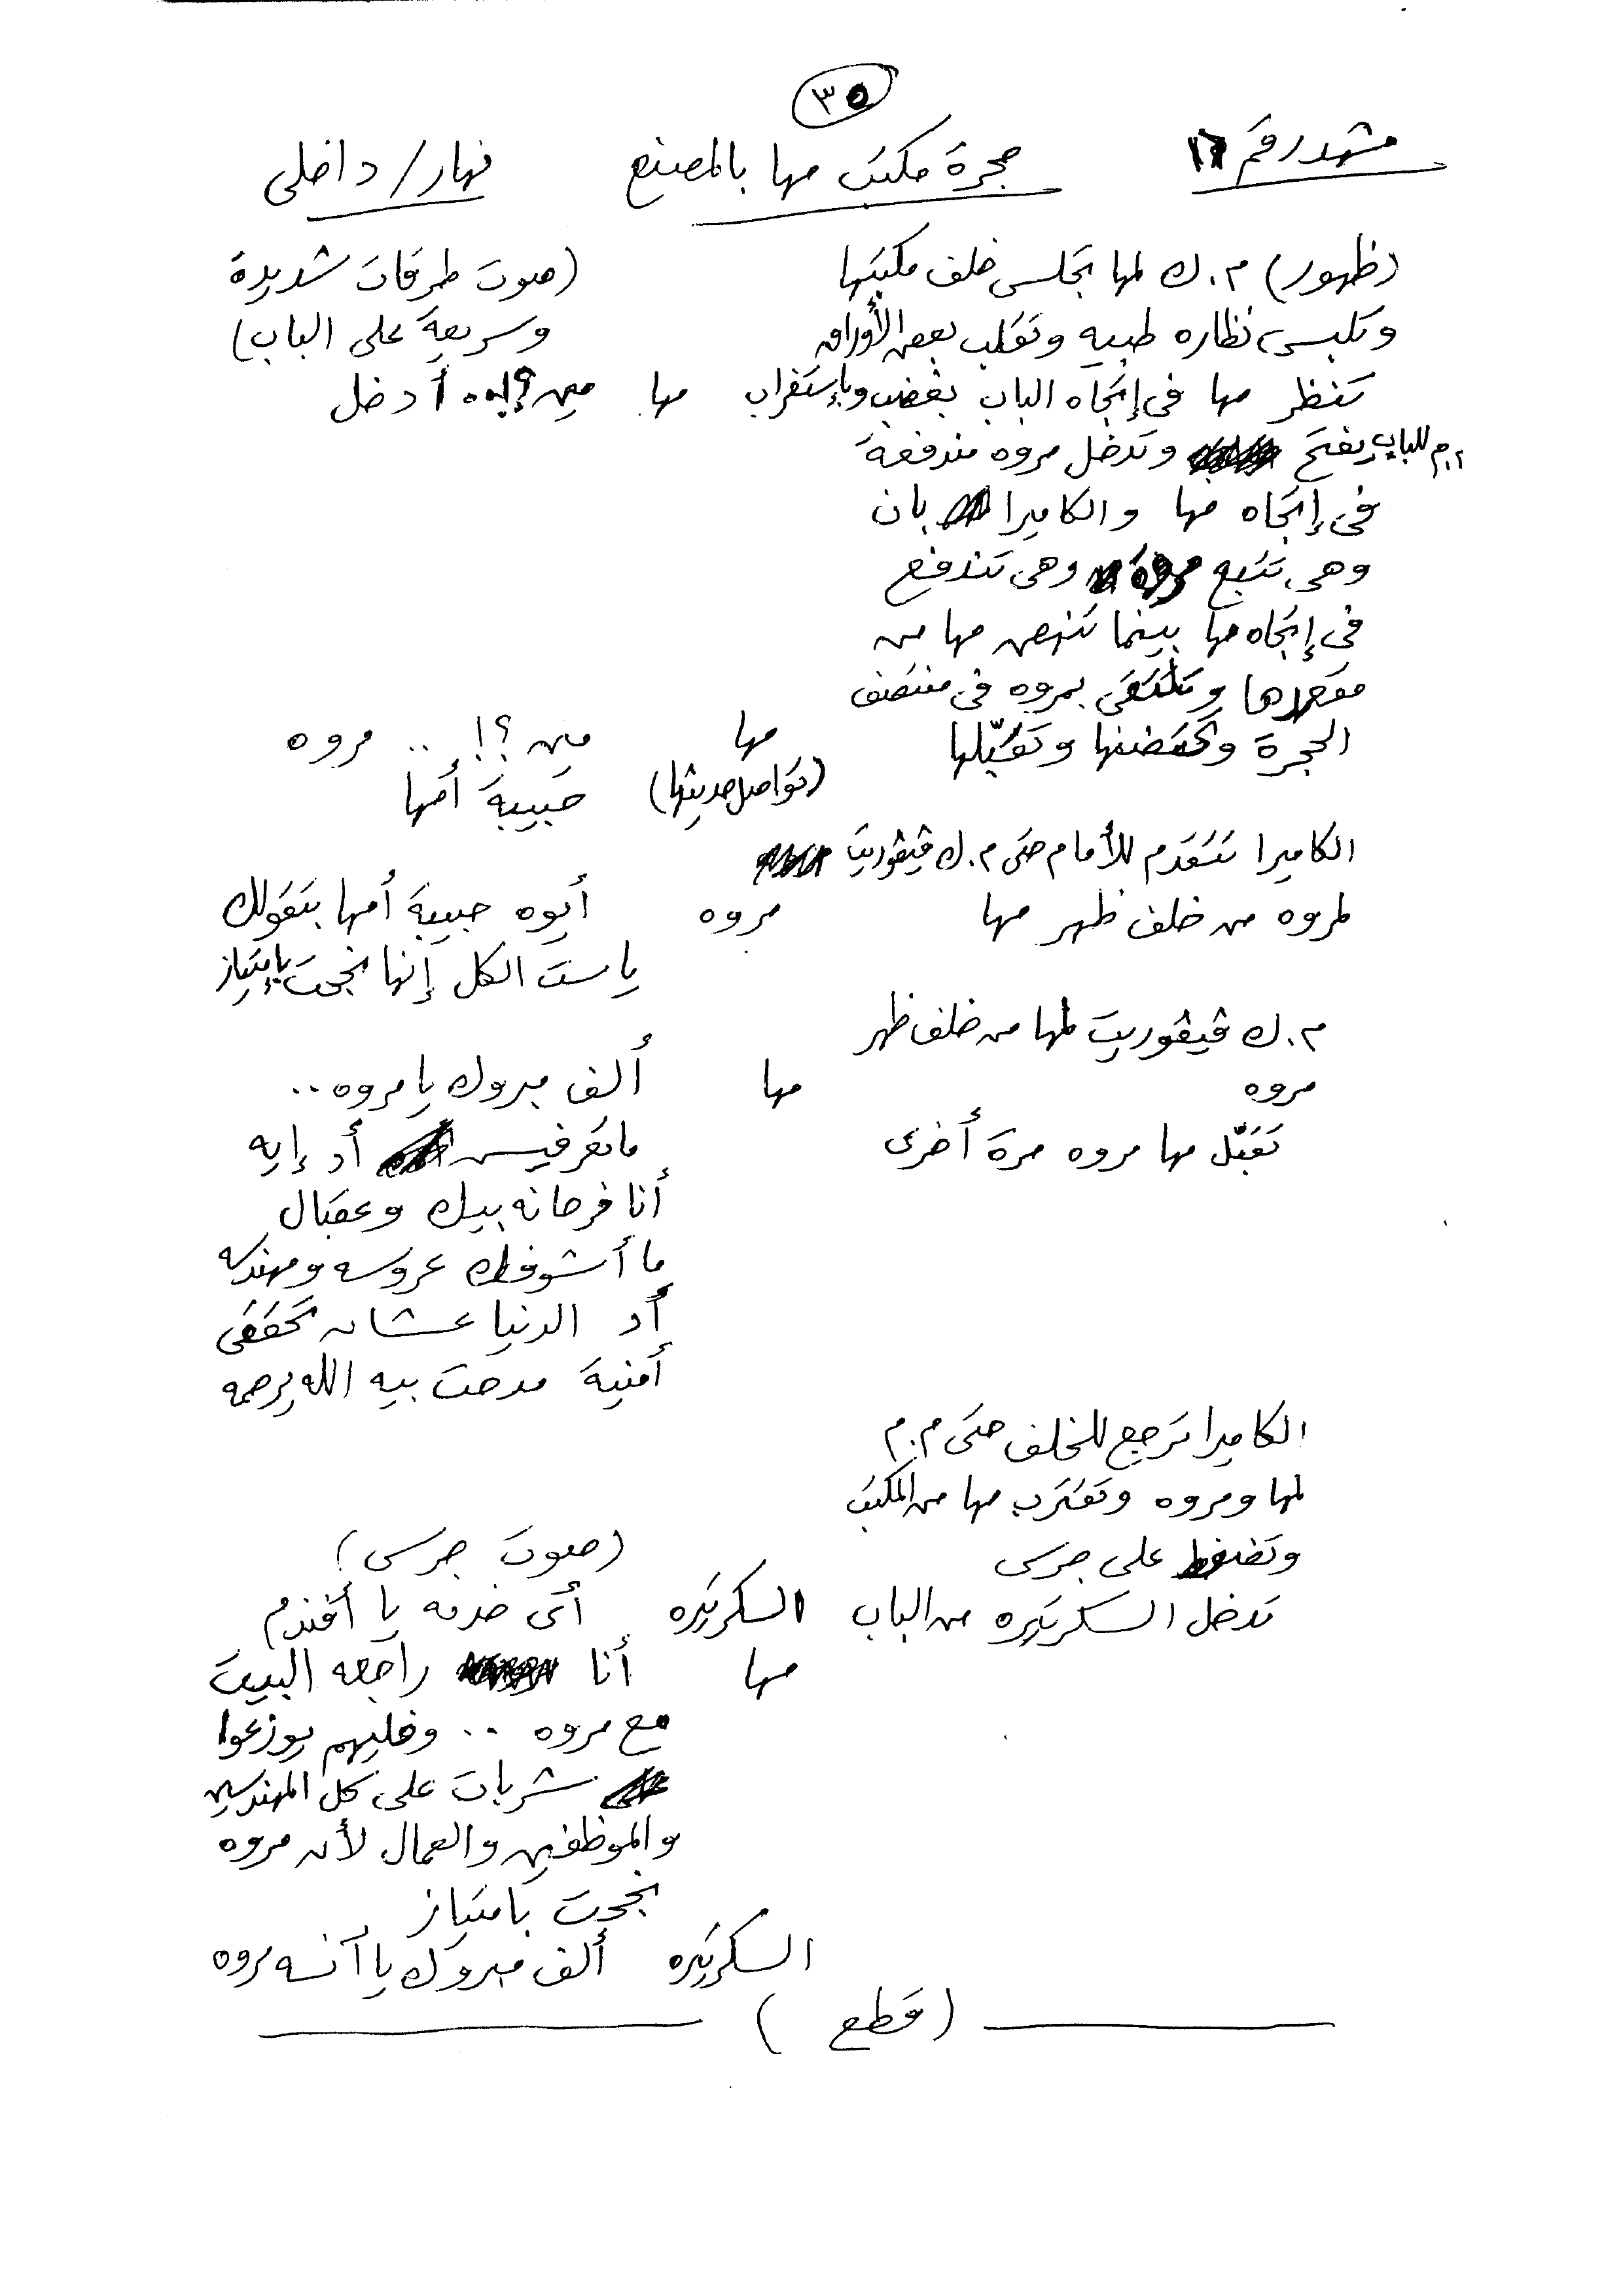 ٣٥
مشهد رقم ١٦ حجرة مكتب مها بالمصنع نهار/داخلى
(ظهور) م.ك لمها تجلس خلف مكتبها (صوت طرقات شديدة
وتلبس نظاره طبيه وتقلب بعض الأوراق وسريعة على الباب)
تنظر مها فى إتجاه الباب بغضب وبإستغراب مها مين؟! أدخل
م.م للباب يفتح وتدخل مروه مندفعة
فى إتجاه مها والكاميرا بان
وهى تتبع مروة وهى تندفع
فى إتجاه مها بينما تنهض مها من
مقعدها وتلتقى بمروه فى منتصف
الحجرة وتحتضنها وتقبّلها مها مين؟! .. مروه
(تواصل حديثها) حبيبة أمها
الكاميرا تتقدم للأمام حتى م.ك ڤيڤوريت
لمروه من خلف ظهر مها مروه أيوه حبيبة أمها بتقولك
ياست الكل إنها نجحت بإمتياز
م.ك ڤيڤوريت لمها من خلف ظهر
مروه مها ألف مبروك يا مروه ..
تقبّل مها مروه مرة أخرى ماتعرفيش أد إيه
أنا فرحانه بيك وعقبال
ما أشوفك عروسه ومهندسه
أد الدنيا عشان تحققى
أمنية مدحت بيه الله يرحمه
الكاميرا ترجع للخلف حتى م.م
لمها ومروه وتقترب مها من المكتب
وتضغط على جرس (صوت جرس)
تدخل السكرتيره من الباب السكرتيره أى خدمه يا أفندم
مها أنا راجعه البيت
مع مروه .. وخليهم يوزعوا
شربات على كل المهندسين
والموظفين والعمال لأن مروه
نجحت بامتياز
السكرتيره ألف مبروك يا آنسه مروه
(قطع)